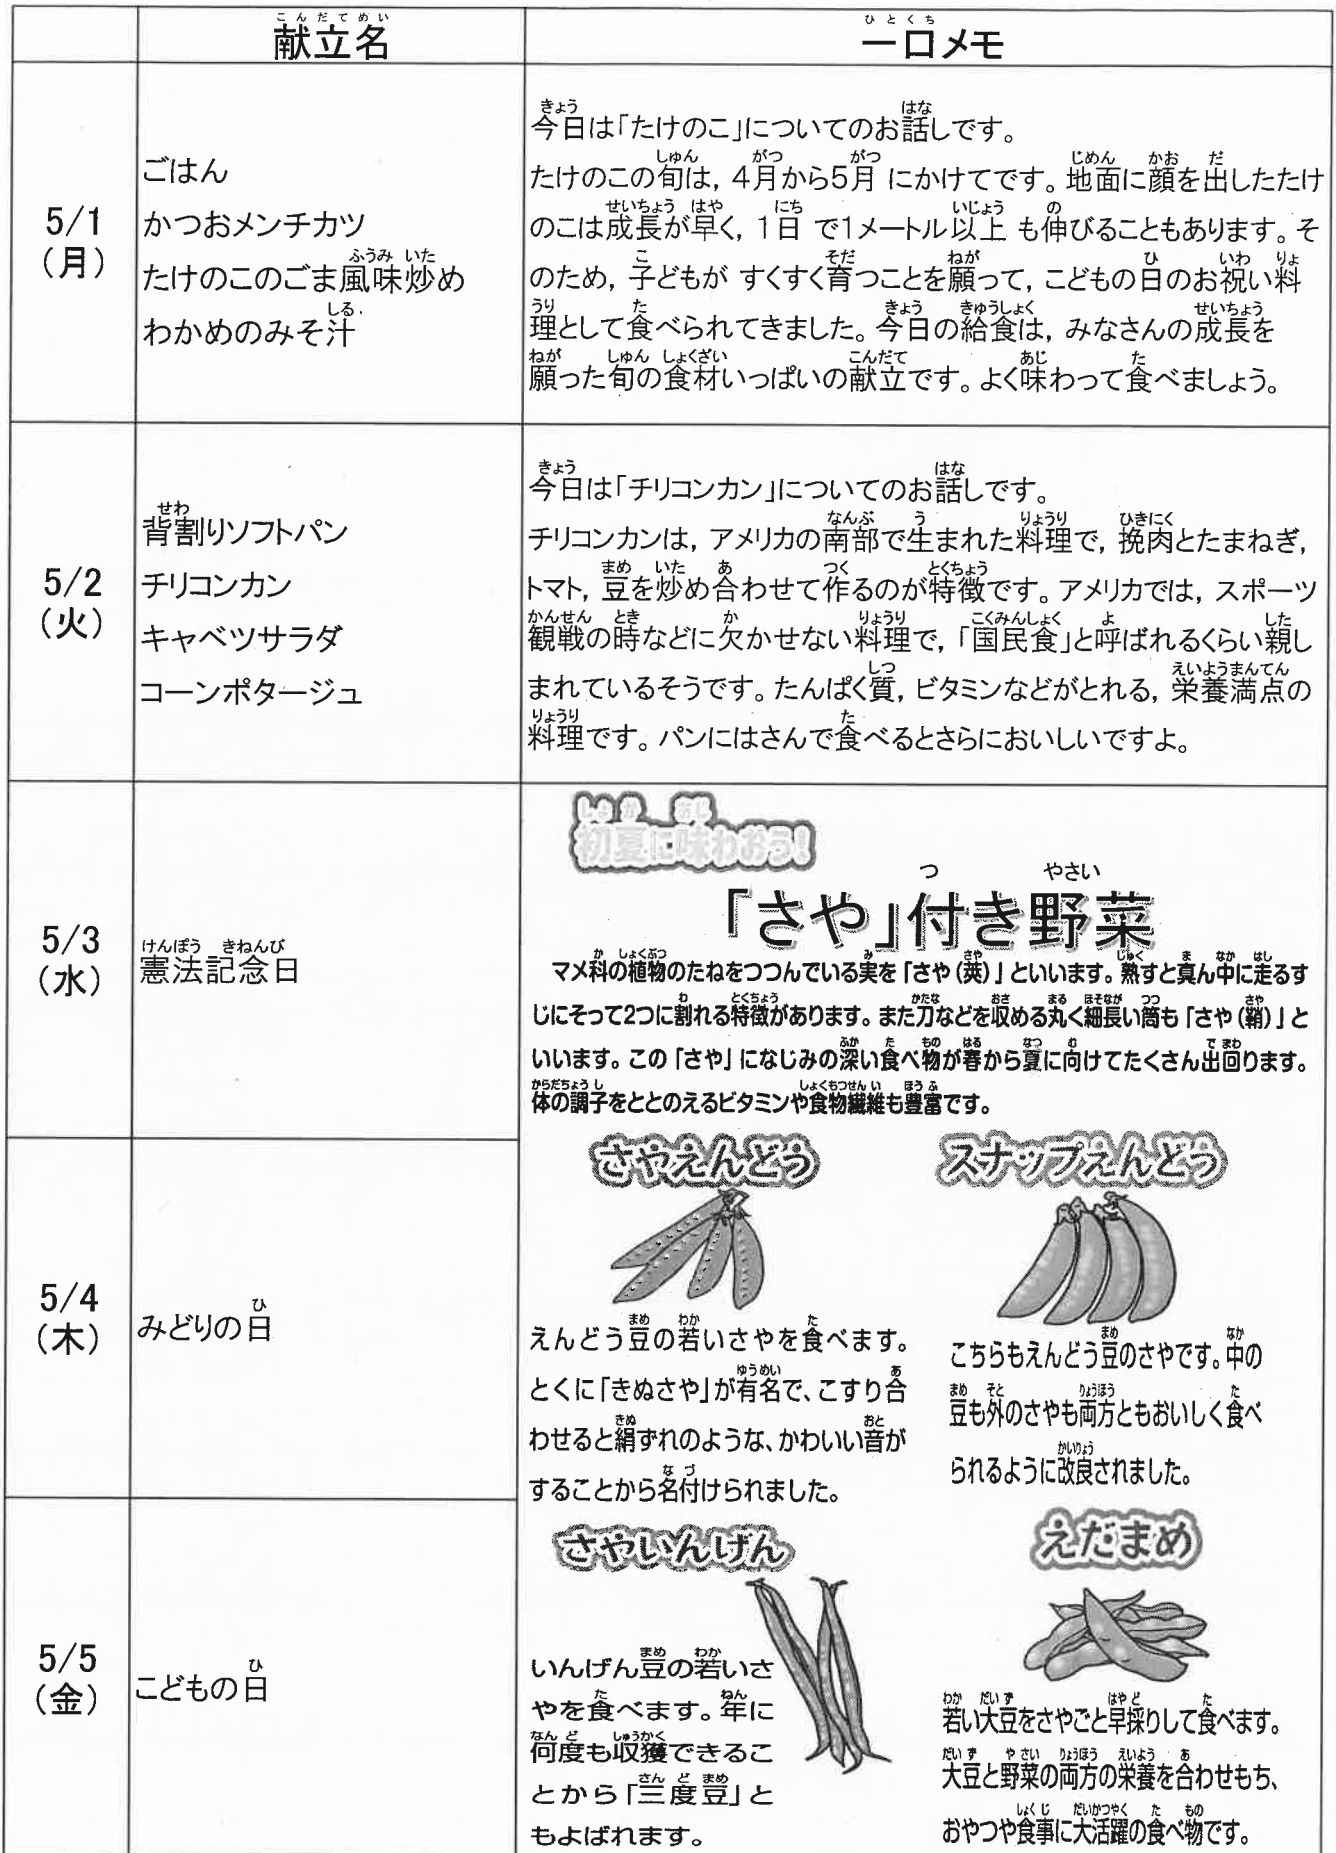 献立名
一口メモ
5/1
(月)
ごはん
かつおメンチカツ
たけのこのごま風味炒め
わかめのみそ汁
今日は「たけのこ」についてのお話しです。
たけのこの旬は，４月から５月 にかけてです。地面に顔を出したたけ
のこは成長が早く，１日 で１メートル以上 も伸びることもあります。そ
のため，子どもが すくすく育つことを願って，こどもの日のお祝い料
理として食べられてきました。今日の給食は，みなさんの成長を
願った旬の食材いっぱいの献立です。よく味わって食べましょう。
5/2
(火)
背割りソフトパン
チリコンカン
キャベツサラダ
コーンポタージュ
今日は「チリコンカン」についてのお話しです。
チリコンカンは，アメリカの南部で生まれた料理で，挽肉とたまねぎ，
トマト，豆を炒め合わせて作るのが特徴です。アメリカでは，スポーツ
観戦の時などに欠かせない料理で，「国民食」と呼ばれるくらい親し
まれているそうです。たんぱく質，ビタミンなどがとれる，栄養満点の
料理です。パンにはさんで食べるとさらにおいしいですよ。
5/3
(水)
憲法記念日
初夏に味わおう！
「さや」付き野菜
マメ科の植物のたねをつつんでいる実を「さや（莢）」といいます。熟すと真ん中に走るす
じにそって2つに割れる特徴があります。また刀などを収める丸く細長い筒も「さや（鞘）」と
いいます。この「さや」になじみの深い食べ物が春から夏に向けてたくさん出回ります。
体の調子をととのえるビタミンや食物繊維も豊富です。
5/4
(木)
みどりの日
さやえんどう
えんどう豆の若いさやを食べます。
とくに「きぬさや」が有名で、こすり合
わせると絹ずれのような、かわいい音が
することから名付けられました。
スナップえんどう
こちらもえんどう豆のさやです。中の
豆も外のさやも両方ともおいしく食べ
られるように改良されました。
5/5
(金)
こどもの日
さやいんげん
いんげん豆の若いさ
やを食べます。年に
何度も収獲できるこ
とから「三度豆」と
もよばれます。
えだまめ
若い大豆をさやごと早採りして食べます。
大豆と野菜の両方の栄養を合わせもち、
おやつや食事に大活躍の食べ物です。